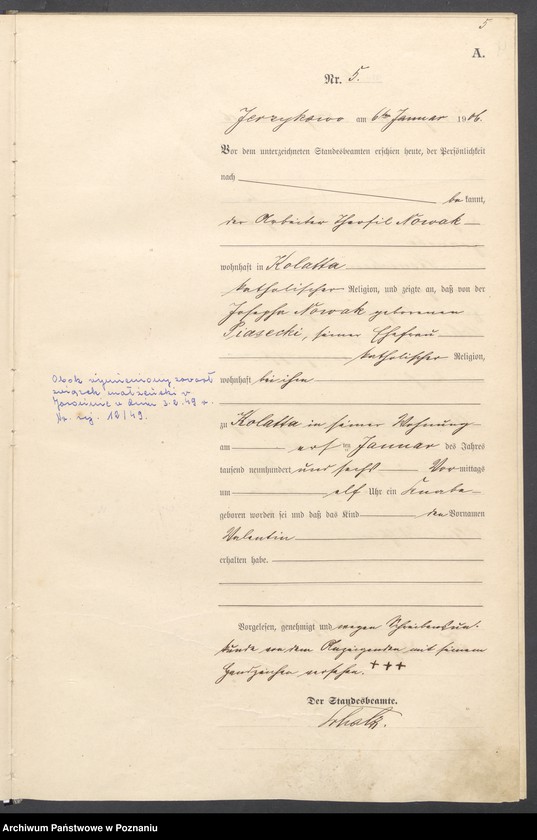 5
A.
Nr. 5.
Jerzykowo am 6ten Januar 1906.
Vor dem unterzeichneten Standesbeamten erschien heute, der Persönlichkeit
nach
bekannt,
der Arbeiter Theofil Nowak
wohnhaft in Kolatta
katholischer Religion, und zeigte an, daß von der
Josepha Nowak geborenen
Piasecki, seiner Ehefrau
katholischer Religion,
wohnhaft bei ihm
zu Kolatta in seiner Wohnung
am ten Januar des Jahres
tausend neunhundert und sechs Vormittags
um elf Uhr ein Knabe
geboren worden sei und daß das Kind den Vornamen
Valentin
erhalten habe.
Vorgelesen, genehmigt und wegen Schreibensun-
kunde von dem Anzeigenden mit seinem
Handzeichen versehen. +++
Der Standesbeamte.
Obok wymieniony zawarł
związek małżeński w
w dniu 3.2.49 r.
Nr. rej. 12/49.
Archiwum Państwowe w Poznaniu